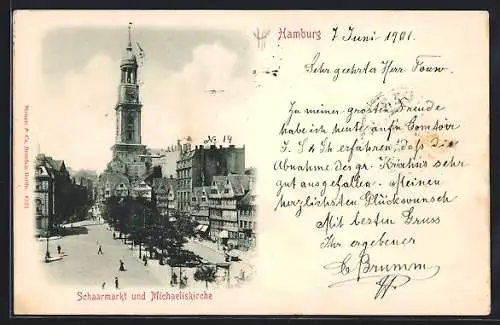 Hamburg 7 Juni 1901.
Sehr geehrter Herr
No 14
In meiner grossen Freude
habe ich heute auf'm Comtoir
erfahren, dass die
Abnahme des gr. sehr
gut ausgefallen. Meinen
herzlichsten Glückwunsch
Mit besten Gruss
Ihr ergebener
C Brumm
Schaarmarkt und Michaeliskirche